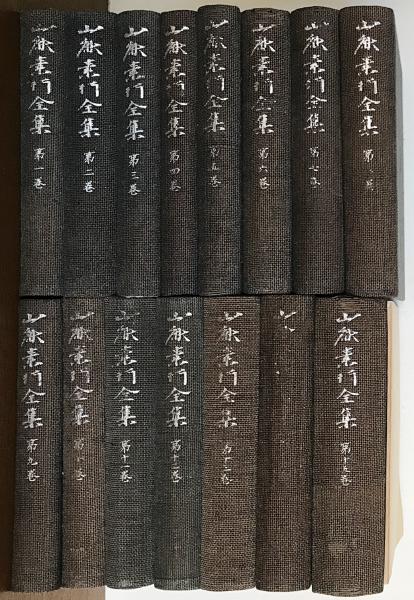 山鹿素行全集 第一巻
山鹿素行全集 第二巻
山鹿素行全集 第三巻
山鹿素行全集 第四巻
山鹿素行全集 第五巻
山鹿素行全集 第六巻
山鹿素行全集 第七巻
山鹿素行全集 第
山鹿素行全集 第九巻
山鹿素行全集 第
山鹿素行全集 第十一巻
山鹿素行全集 第十二巻
山鹿素行全集
山
山鹿素行全集 第十五巻